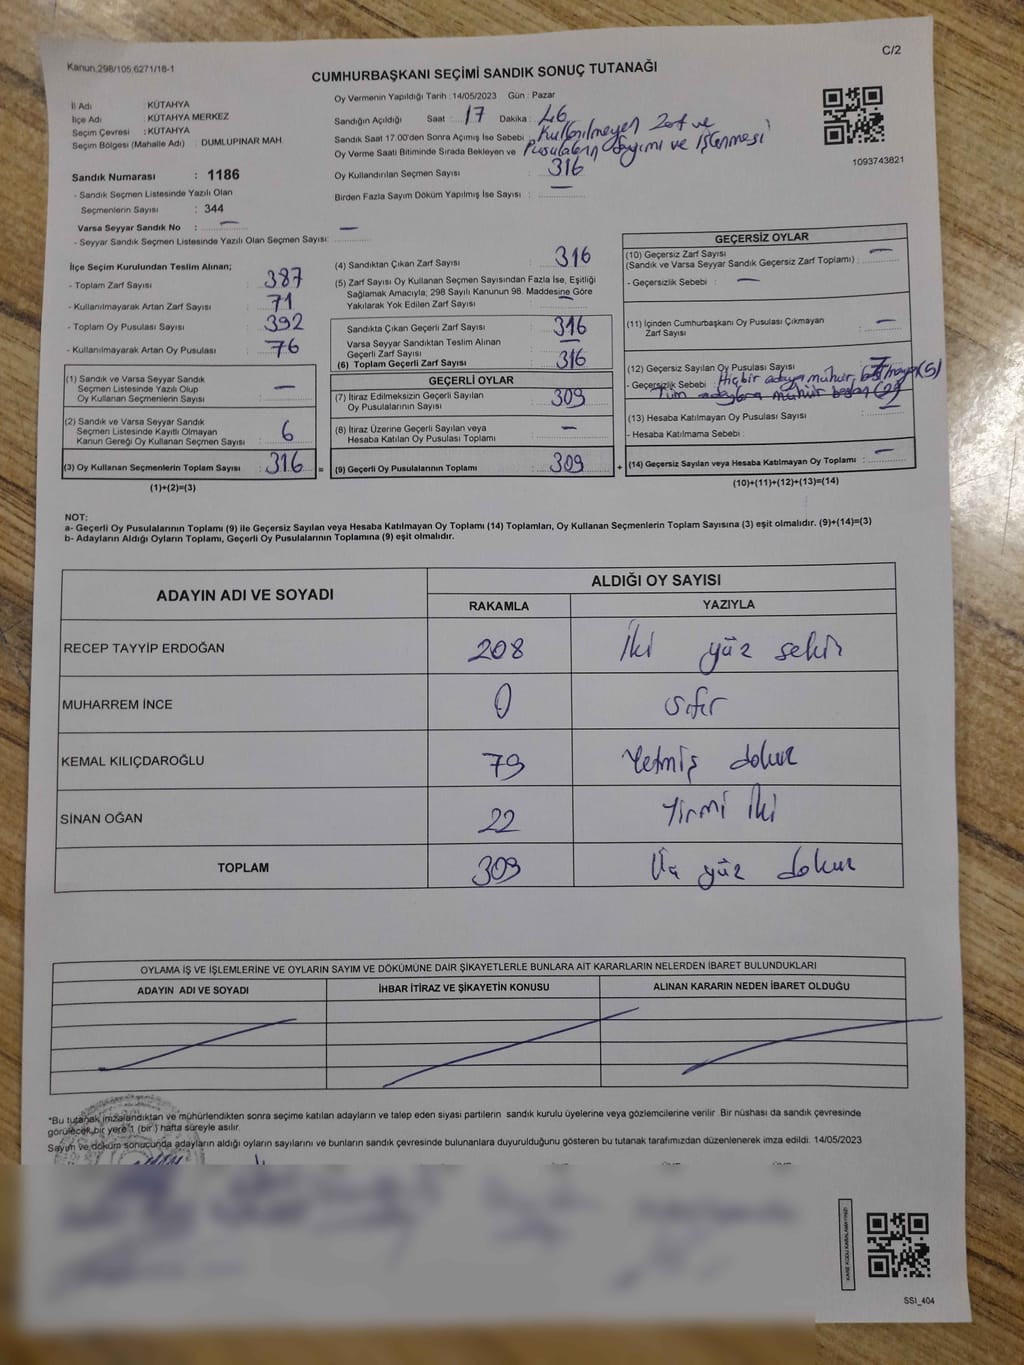 C/2
Kanun,298/105,6271/18-1
CUMHURBAŞKANI SEÇİMİ SANDIK SONUÇ TUTANAĞI
İl Adı : KÜTAHYA
İlçe Adı : KÜTAHYA MERKEZ
Seçim Çevresi : KÜTAHYA
Seçim Bölgesi (Mahalle Adı) : DUMLUPINAR MAH.
Sandık Numarası : 1186
- Sandık Seçmen Listesinde Yazılı Olan
Seçmenlerin Sayısı : 344
Varsa Seyyar Sandık No : —
- Seyyar Sandık Seçmen Listesinde Yazılı Olan Seçmen Sayısı: —
Oy Vermenin Yapıldığı Tarih : 14/05/2023 Gün : Pazar
Sandığın Açıldığı Saat : 17 Dakika : 46
Sandık Saat 17:00'den Sonra Açımış İse Sebebi : Kullanılmayan Zarf ve
Oy Verme Saati Bitiminde Sırada Bekleyen ve Pusulaların Sayımı ve İşlenmesi
Oy Kullandırılan Seçmen Sayısı : 316
Birden Fazla Sayım Döküm Yapılmış İse Sayısı : —
1093743821
İlçe Seçim Kurulundan Teslim Alınan;
- Toplam Zarf Sayısı : 387
- Kullanılmayarak Artan Zarf Sayısı : 71
- Toplam Oy Pusulası Sayısı : 392
- Kullanılmayarak Artan Oy Pusulası : 76
(1) Sandık ve Varsa Seyyar Sandık
Seçmen Listesinde Yazılı Olup
Oy Kullanan Seçmenlerin Sayısı : —
(2) Sandık ve Varsa Seyyar Sandık
Seçmen Listesinde Kayıtlı Olmayan
Kanun Gereği Oy Kullanan Seçmen Sayısı : 6
(3) Oy Kullanan Seçmenlerin Toplam Sayısı : 316 =
(1)+(2)=(3)
(4) Sandıktan Çıkan Zarf Sayısı : 316
(5) Zarf Sayısı Oy Kullanan Seçmen Sayısından Fazla İse, Eşitliği
Sağlamak Amacıyla; 298 Sayılı Kanunun 98. Maddesine Göre
Yakılarak Yok Edilen Zarf Sayısı : —
Sandıkta Çıkan Geçerli Zarf Sayısı : 316
Varsa Seyyar Sandıktan Teslim Alınan
Geçerli Zarf Sayısı : —
(6) Toplam Geçerli Zarf Sayısı : 316
GEÇERLİ OYLAR
(7) İtiraz Edilmeksizin Geçerli Sayılan
Oy Pusulalarının Sayısı : 309
(8) İtiraz Üzerine Geçerli Sayılan veya
Hesaba Katılan Oy Pusulası Toplamı : —
(9) Geçerli Oy Pusulalarının Toplamı : 309 +
GEÇERSİZ OYLAR
(10) Geçersiz Zarf Sayısı
(Sandık ve Varsa Seyyar Sandık Geçersiz Zarf Toplamı) : —
- Geçersizlik Sebebi : —
(11) İçinden Cumhurbaşkanı Oy Pusulası Çıkmayan
Zarf Sayısı : —
(12) Geçersiz Sayılan Oy Pusulası Sayısı : 7
- Geçersizlik Sebebi : Hiçbir adaya mühür (5)
Tüm adaylara mühür basan (2)
(13) Hesaba Katılmayan Oy Pusulası Sayısı : —
- Hesaba Katılmama Sebebi :
(14) Geçersiz Sayılan veya Hesaba Katılmayan Oy Toplamı : —
(10)+(11)+(12)+(13)=(14)
NOT:
a- Geçerli Oy Pusulalarının Toplamı (9) ile Geçersiz Sayılan veya Hesaba Katılmayan Oy Toplamı (14) Toplamları, Oy Kullanan Seçmenlerin Toplam Sayısına (3) eşit olmalıdır. (9)+(14)=(3)
b- Adayların Aldığı Oyların Toplamı, Geçerli Oy Pusulalarının Toplamına (9) eşit olmalıdır.
ADAYIN ADI VE SOYADI ALDIĞI OY SAYISI
RAKAMLA YAZIYLA
RECEP TAYYİP ERDOĞAN 208 İki yüz sekiz
MUHARREM İNCE 0 sıfır
KEMAL KILIÇDAROĞLU 79 Yetmiş dokuz
SİNAN OĞAN 22 Yirmi İki
TOPLAM 309 Üç yüz dokuz
OYLAMA İŞ VE İŞLEMLERİNE VE OYLARIN SAYIM VE DÖKÜMÜNE DAİR ŞİKAYETLERLE BUNLARA AİT KARARLARIN NELERDEN İBARET BULUNDUKLARI
ADAYIN ADI VE SOYADI İHBAR İTİRAZ VE ŞİKAYETİN KONUSU ALINAN KARARIN NEDEN İBARET OLDUĞU
*Bu tutanak imzalandıktan ve mühürlendikten sonra seçime katılan adayların ve talep eden siyasi partilerin sandık kurulu üyelerine veya gözlemcilerine verilir. Bir nüshası da sandık çevresinde
görülecek bir yere 1 (bir) hafta süreyle asılır.
Sayım ve döküm sonucunda adayların aldığı oyların sayılarını ve bunların sandık çevresinde bulunanlara duyurulduğunu gösteren bu tutanak tarafımızdan düzenlenerek imza edildi. 14/05/2023
KARE KODU KARALAMAYINIZ!
SSI_404